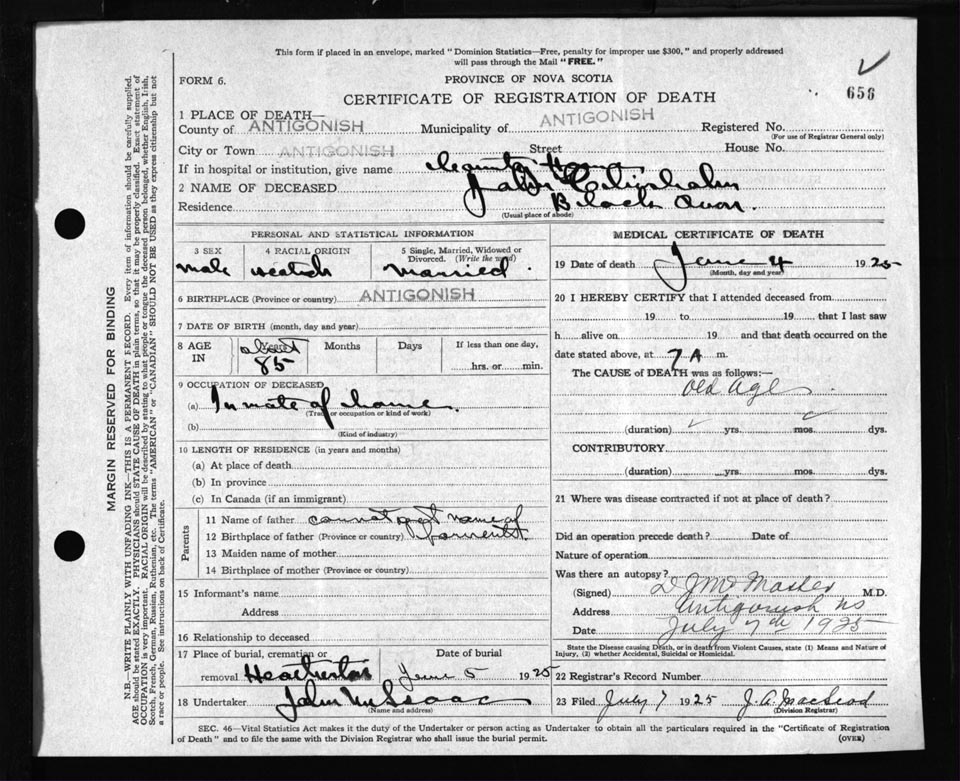 This form if placed in an envelope, marked "Dominion Statistics—Free, penalty for improper use $300," and properly addressed
will pass through the Mail "FREE."
FORM 6.
PROVINCE OF NOVA SCOTIA
658
CERTIFICATE OF REGISTRATION OF DEATH
1 PLACE OF DEATH—
County of ANTIGONISH Municipality of ANTIGONISH Registered No.
(For use of Registrar General only)
City or Town ANTIGONISH Street House No.
If in hospital or institution, give name County Home
2 NAME OF DECEASED John Chisholm
Residence Black Avon.
(Usual place of abode)
PERSONAL AND STATISTICAL INFORMATION
3 SEX 4 RACIAL ORIGIN 5 Single, Married, Widowed or
Divorced. (Write the word)
male Scotch Married.
6 BIRTHPLACE (Province or country) ANTIGONISH
7 DATE OF BIRTH (month, day and year)
8 AGE IN Years Months Days If less than one day,
about 85 hrs. or min.
9 OCCUPATION OF DECEASED
(a) Inmate of home.
(Trade or occupation or kind of work)
(b)
(Kind of industry)
10 LENGTH OF RESIDENCE (in years and months)
(a) At place of death
(b) In province
(c) In Canada (if an immigrant)
Parents
11 Name of father cannot get name of
12 Birthplace of father (Province or country) parents.
13 Maiden name of mother
14 Birthplace of mother (Province or country)
15 Informant's name
Address
16 Relationship to deceased
17 Place of burial, cremation or Date of burial
removal Heatherton June 5 1925
18 Undertaker John McIsaac
(Name and address)
MEDICAL CERTIFICATE OF DEATH
19 Date of death June 4 1925
(Month, day and year)
20 I HEREBY CERTIFY that I attended deceased from
19 to 19 that I last saw
h alive on 19 and that death occurred on the
date stated above, at 7 A m.
The CAUSE of DEATH was as follows:—
Old Age
(duration) yrs. mos. dys.
CONTRIBUTORY
(duration) yrs. mos. dys.
21 Where was disease contracted if not at place of death?
Did an operation precede death? Date of
Nature of operation
Was there an autopsy?
(Signed) M.D.
Address Antigonish NS
Date July 7th 1925
State the Disease causing Death, or in death from Violent Causes, state (1) Means and Nature of
Injury, (2) whether Accidental, Suicidal or Homicidal.
22 Registrar's Record Number
23 Filed July 7 1925 J. A. MacLeod
(Division Registrar)
SEC. 46—Vital Statistics Act makes it the duty of the Undertaker or person acting as Undertaker to obtain all the particulars required in the "Certificate of Registration
of Death" and to file the same with the Division Registrar who shall issue the burial permit.
(OVER)
MARGIN RESERVED FOR BINDING
N.B.—WRITE PLAINLY WITH UNFADING INK—THIS IS A PERMANENT RECORD. Every item of information should be carefully supplied.
AGE should be stated EXACTLY. PHYSICIANS should STATE CAUSE OF DEATH in plain terms, so that it may be properly classified. Exact statement of
OCCUPATION is very important. RACIAL ORIGIN will be described by stating to what people or tongue the deceased person belonged, whether English, Irish,
Scotch, French, German, Russian, Ruthenian, etc. The terms "AMERICAN" or "CANADIAN" SHOULD NOT BE USED as they express citizenship but not
a race or people. See instructions on back of Certificate.